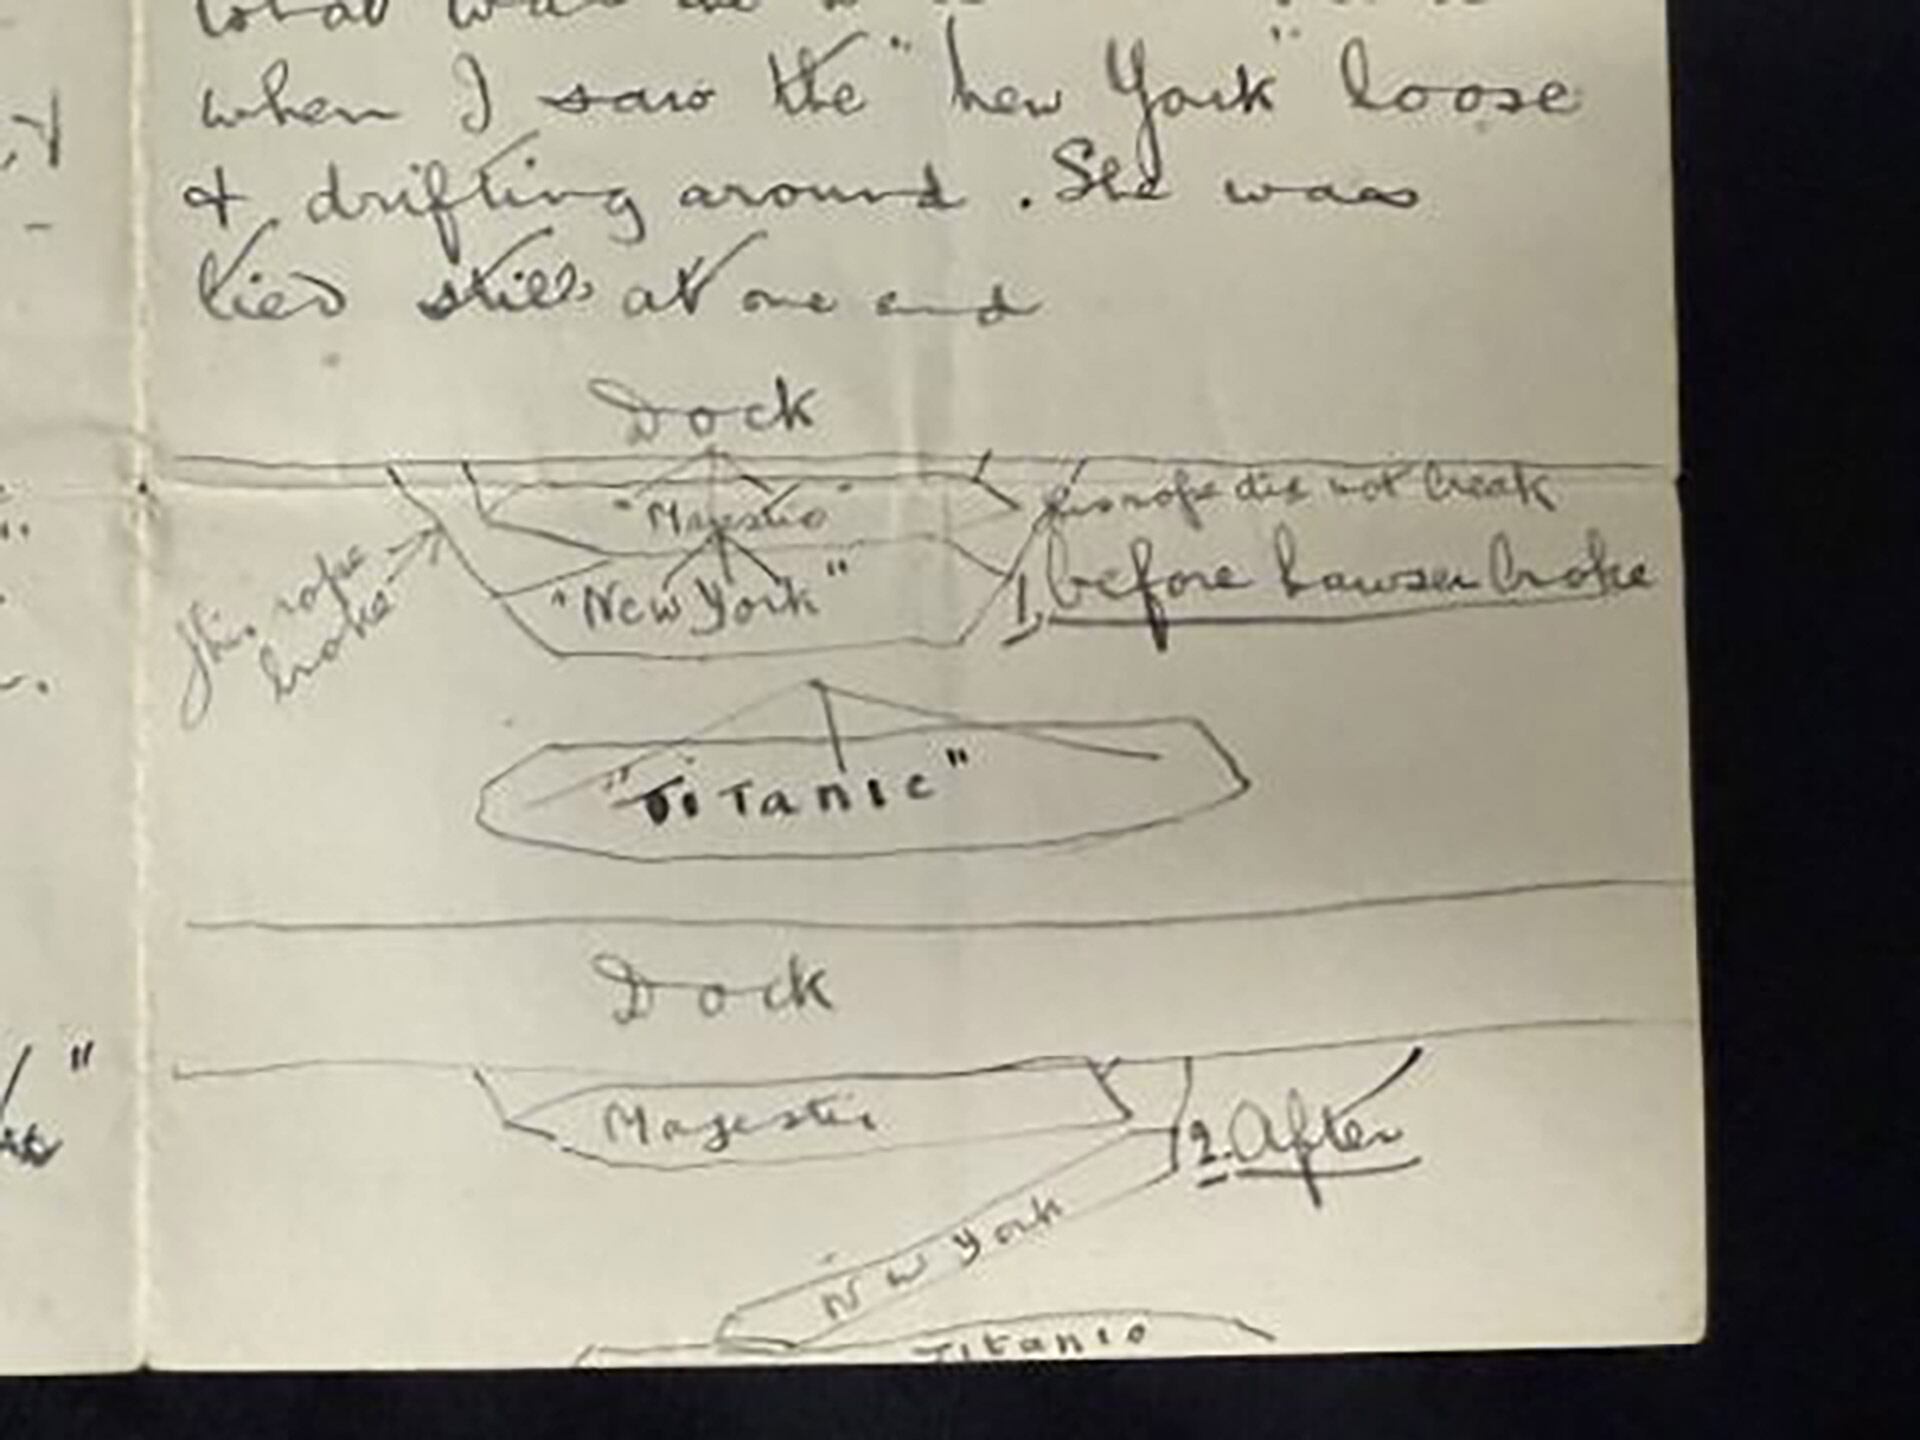 what was
when I saw the "New York" loose
& drifting around. She was
tied still at one end
Dock
"Majestic"
this rope did not break
"New York"
1, before hawser broke
This rope
broke
"Titanic"
Dock
Majestic
2. After
New York
Titanic